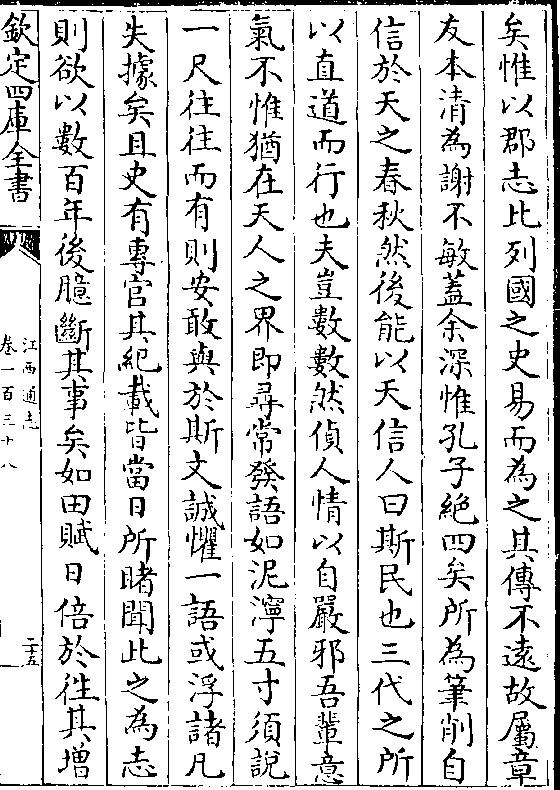 矣惟以郡志比列國之史易而為之其傳不遠故屬章
友本清為謝不敏蓋余深惟孔子絶四矣所為筆削自
信於天之春秋然後能以天信人曰斯民也三代之所
以直道而行也夫豈數數然偵人情以自嚴邪吾輩意
氣不惟猶在天人之界即尋常發語如泥濘五寸須説
一尺往往而有則安敢與於斯文誠懼一語或浮諸凡
失據矣且史有專官其紀載皆當日所睹聞此之為志
則欲以數百年後臆斷其事矣如田賦日倍於徃其增
欽定四庫全書
江西通志
卷一百三十八
二十五